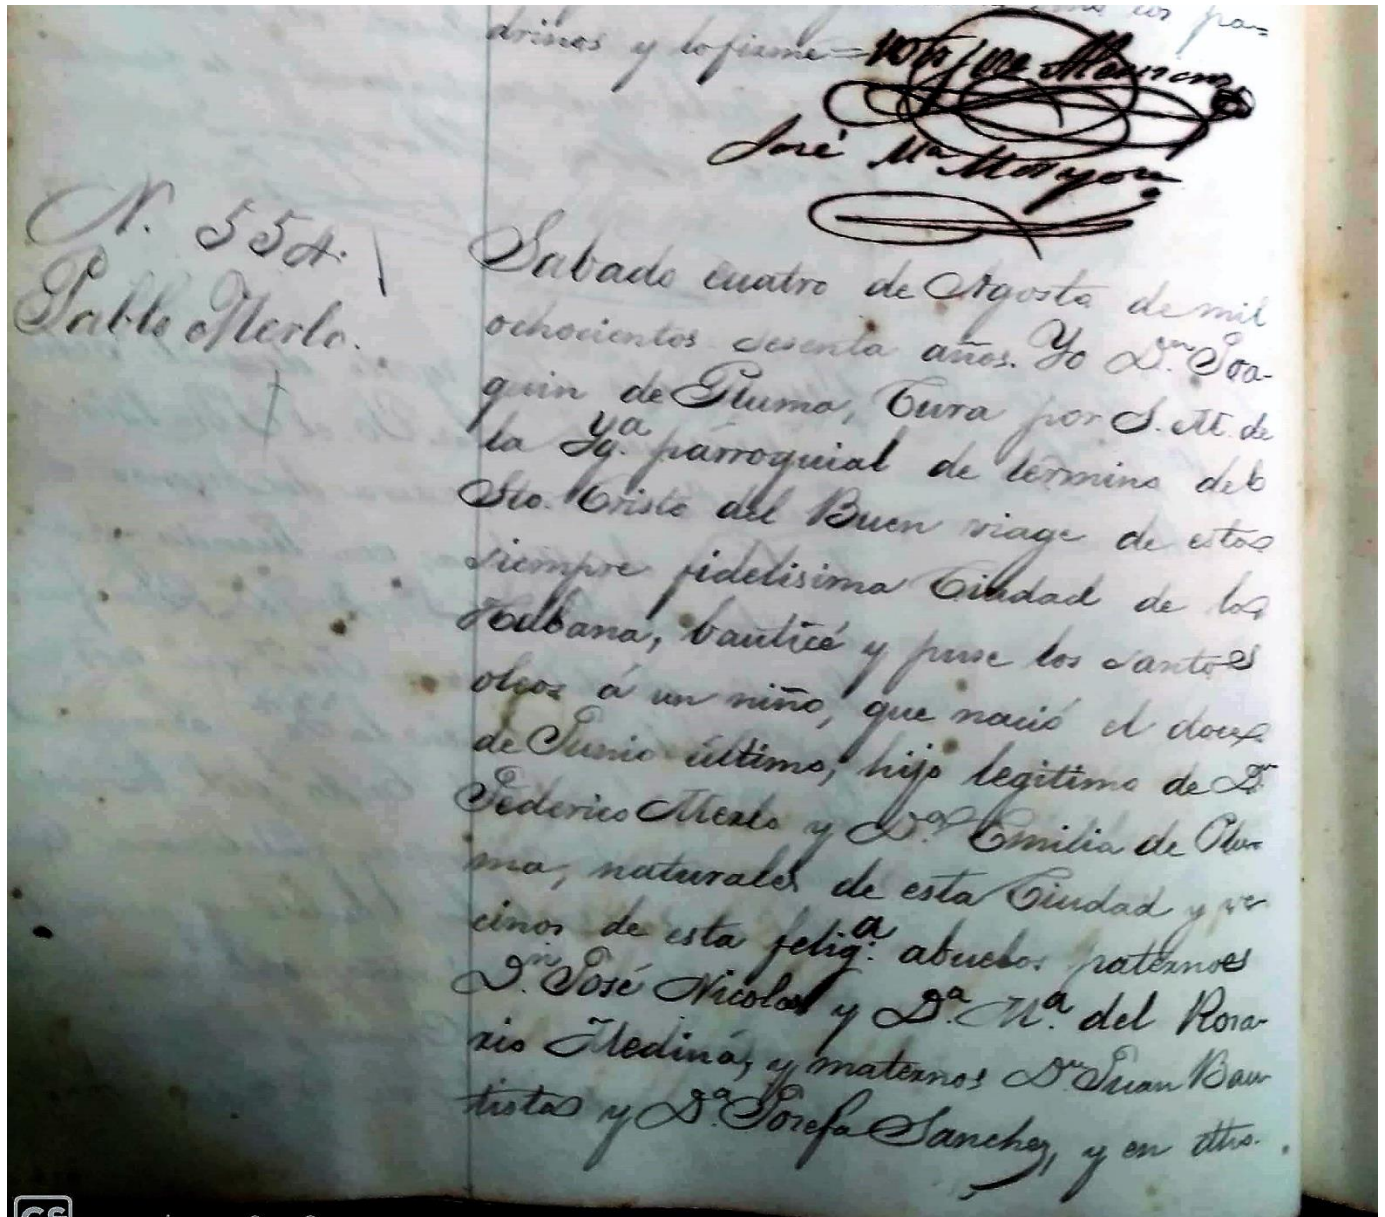 drinos y lo firmé =
José Mª Morejon
N. 554.
Pablo Merlo.
Sabado cuatro de Agosto de mil
ochocientos sesenta años. Yo D.n Joa-
quin de Pluma, Cura por S. M. de
la Yg.ª parroquial de término del
Sto. Cristo del Buen viage de esta
siempre fidelisima Ciudad de la
Habana, bauticé y puse los santos
oleos á un niño, que nació el doce
de Junio último, hijo legitimo de D.n
Federico Merlo y D.ª Emilia de Plu-
ma, naturales de esta Ciudad y ve-
cinos de esta felig.ª: abuelos paternos
D.n José Nicolas y D.ª M.ª del Rosa-
rio Medina, y maternos D.n Juan Bau-
tista y D.ª Josefa Sanchez, y en dho.
CS